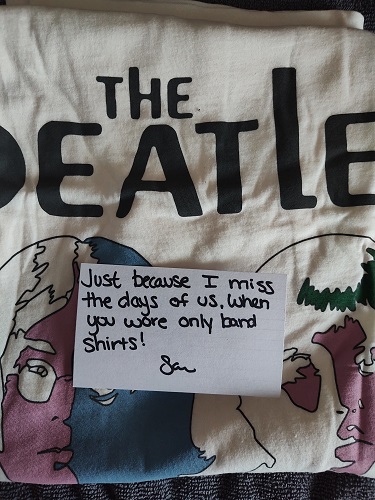 THE
BEATLE
Just because I miss
the days of us. When
you wore only band
shirts!